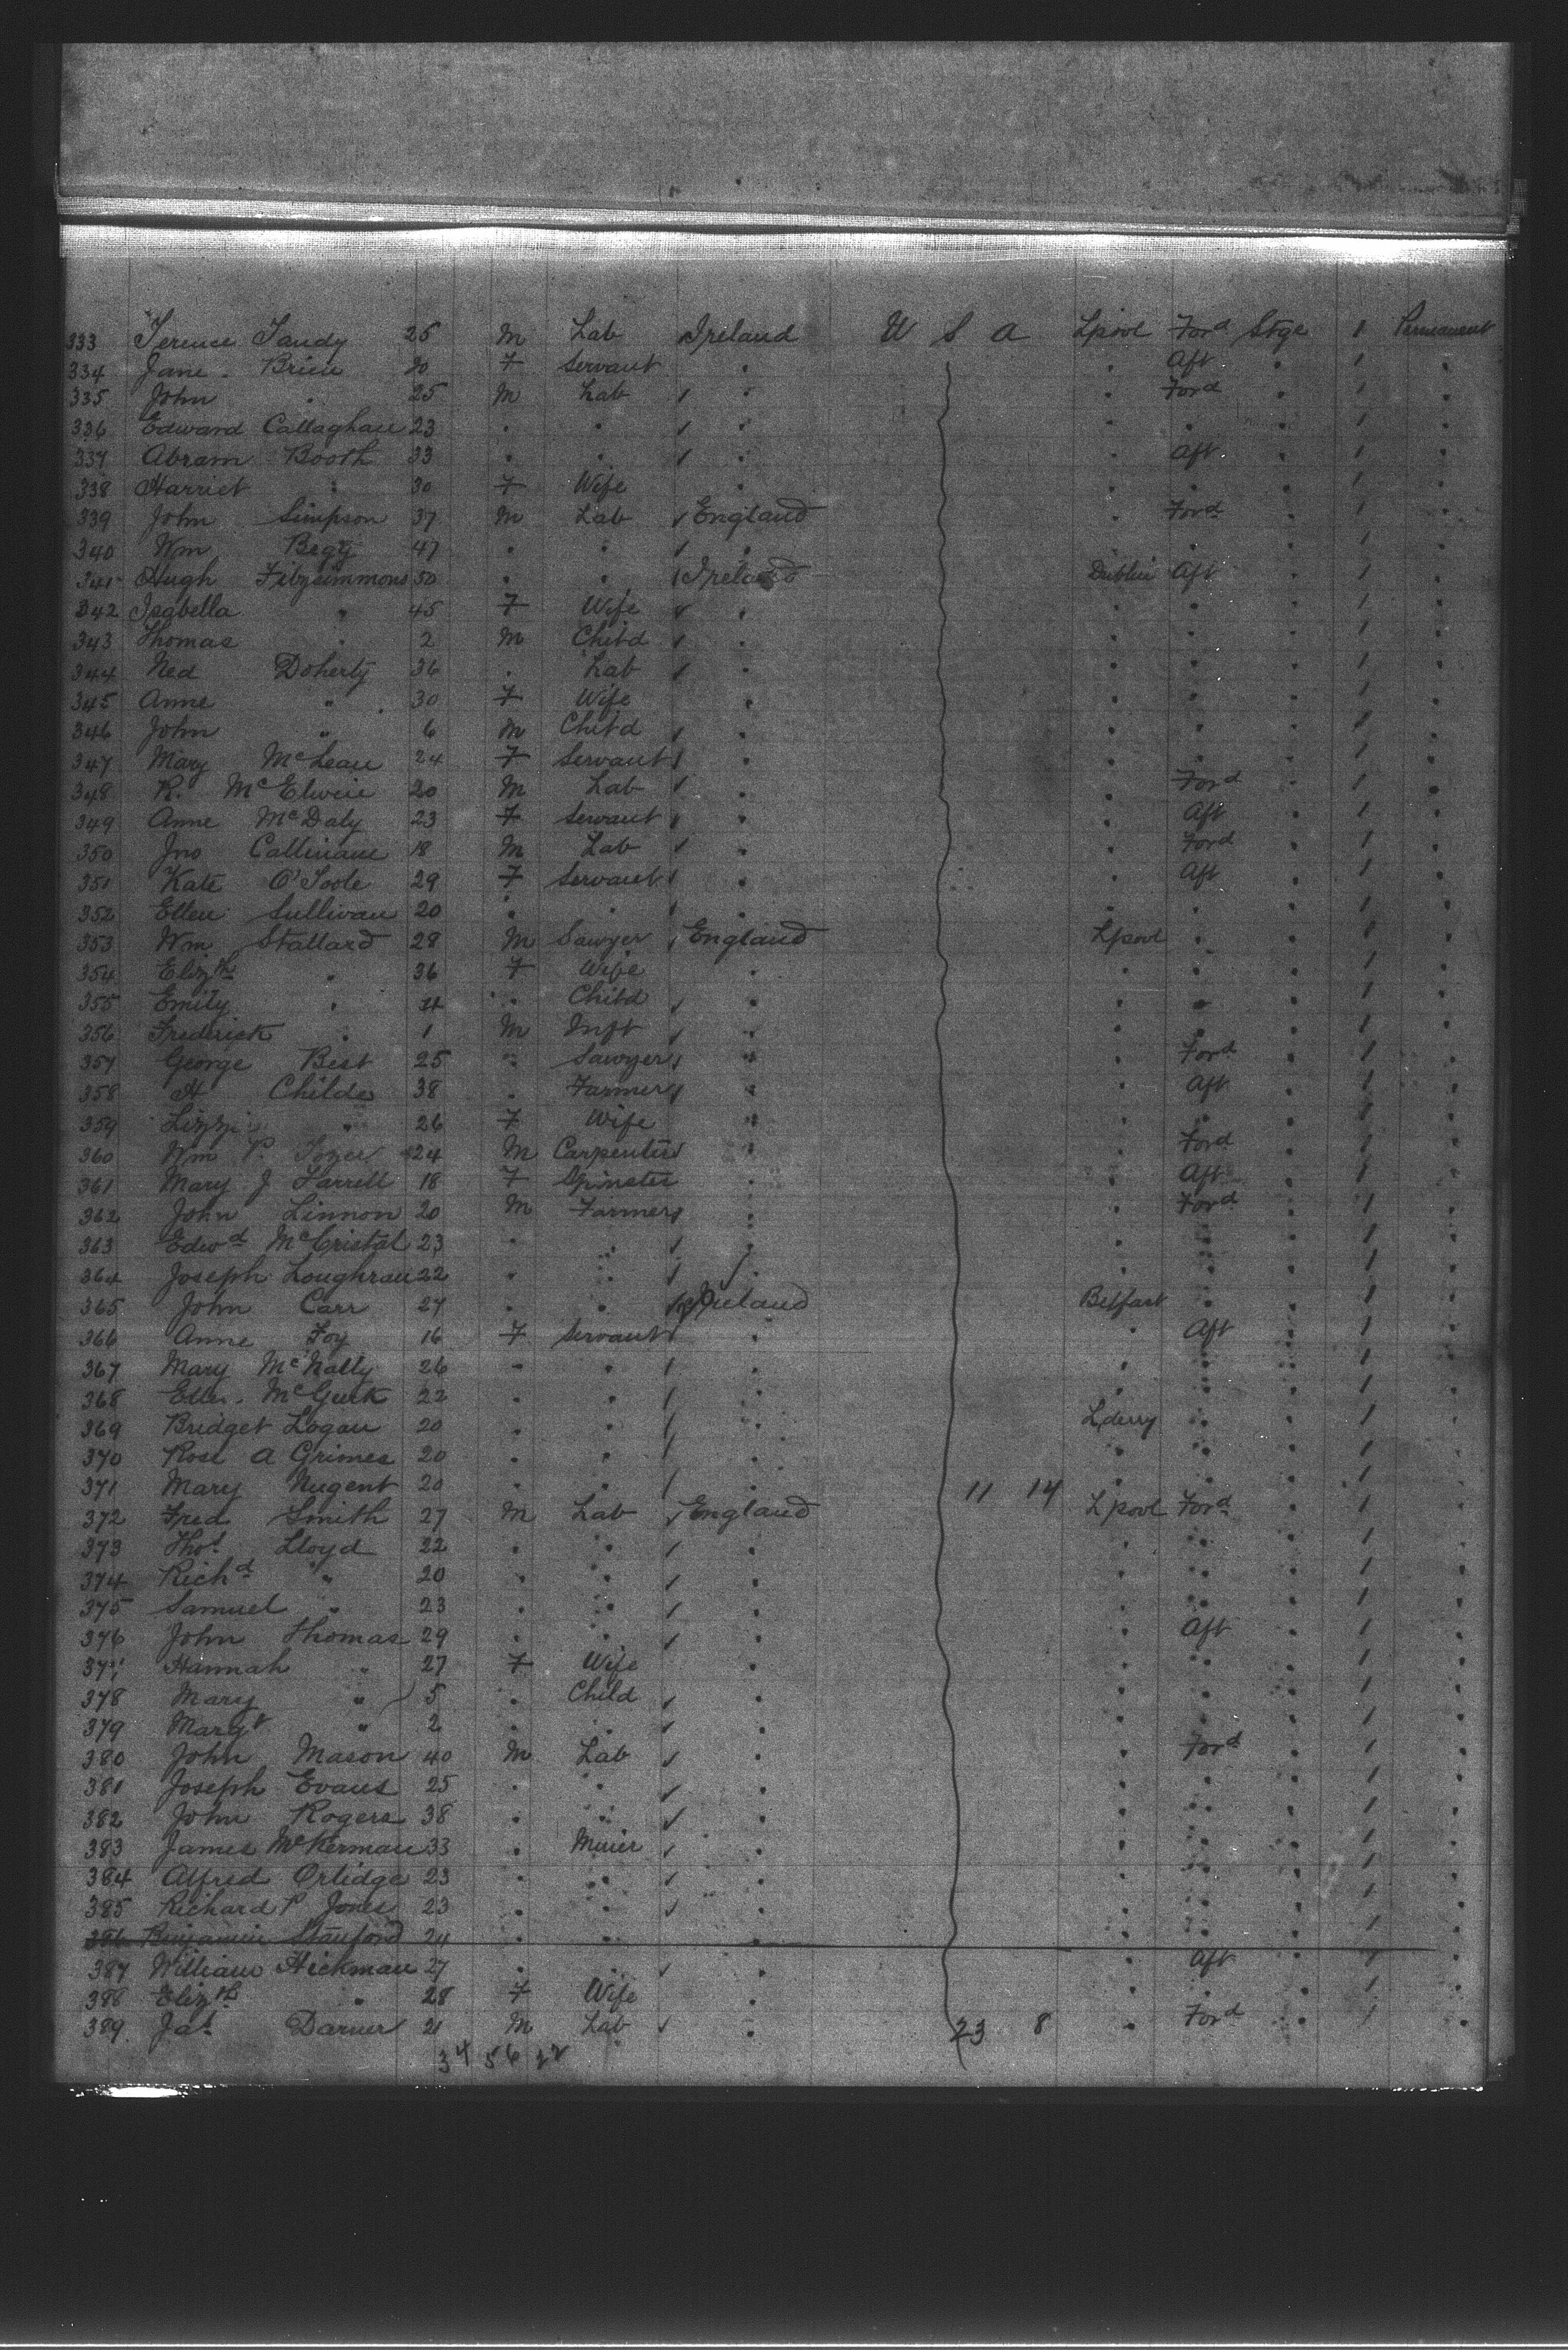 333 Terence Tandy 25 M Lab Ireland U S A Lpool Ford Stge 1 Permanent
334 Jane Brien 20 F Servant " " Aft " 1 "
335 John " 25 M Lab " " Ford " 1 "
336 Edward Callaghan 23 " " " " " " 1 "
337 Abram Booth 33 " " " " Aft " 1 "
338 Harriet " 30 F Wife " " " " 1 "
339 John Simpson 37 M Lab England " Ford " 1 "
340 Wm Begty 47 " " " " " " 1 "
341 Hugh Fitzsimmons 50 " " Ireland Dublin Aft " 1 "
342 Isabella " 45 F Wife " " " " 1 "
343 Thomas " 2 M Child " " " " 1 "
344 Ned Doherty 36 " Lab " " " " 1 "
345 Anne " 30 F Wife " " " " 1 "
346 John " 6 M Child " " " " 1 "
347 Mary McLean 24 F Servant " " " " 1 "
348 R. McElwie 20 M Lab " " Ford " 1 "
349 Anne McDaly 23 F Servant " " Aft " 1 "
350 Jno Callinane 18 M Lab " " Ford " 1 "
351 Kate O'Toole 29 F Servant " " Aft " 1 "
352 Ellen Sullivan 20 " " " " " " 1 "
353 Wm Stallard 28 M Sawyer England Lpool " " 1 "
354 Elizth " 36 F Wife " " " " 1 "
355 Emily " " Child " " " " 1 "
356 Frederick " 1 M Inft " " " " 1 "
357 George Best 25 " Sawyer " " Ford " 1 "
358 H Childs 38 " Farmer " " Aft " 1 "
359 Lizzie " 26 F Wife " " " " 1 "
360 Wm P. 24 M Carpenter " " Ford " 1 "
361 Mary J Farrell 18 F Spinster " " Aft " 1 "
362 John Linnon 20 M Farmer " " Ford " 1 "
363 Edwd McCristal 23 " " " " " " 1 "
364 Joseph Loughran 22 " " " " " " 1 "
365 John Carr 27 " " Ireland Belfast " " 1 "
366 Anne Foy 16 F Servant " " Aft " 1 "
367 Mary McNally 26 " " " " " " 1 "
368 Ellen McGurk 22 " " " " " " 1 "
369 Bridget Logan 20 " " " Lderry " " 1 "
370 Rose A Grimes 20 " " " " " " 1 "
371 Mary Nugent 20 " " " 11 14 " " " 1 "
372 Fred Smith 27 M Lab England Lpool Ford " 1 "
373 Thos Lloyd 22 " " " " " " 1 "
374 Richd " 20 " " " " " " 1 "
375 Samuel " 23 " " " " " " 1 "
376 John Thomas 29 " " " " Aft " 1 "
377 Hannah " 27 F Wife " " " " 1 "
378 Mary " 5 " Child " " " " 1 "
379 Margt " 2 " " " " " " 1 "
380 John Mason 40 M Lab " " Ford " 1 "
381 Joseph Evans 25 " " " " " " 1 "
382 John Rogers 38 " " " " " " 1 "
383 James McKerman 33 " Miner " " " " 1 "
384 Alfred Orlidge 23 " " " " " " 1 "
385 Richard P Jones 23 " " " " " " 1 "
386 Benjamin Stanford 24 " " " " " " 1 "
387 William Hickman 27 " " " " Aft " 1 "
388 Elizth " 28 F Wife " " " " 1 "
389 Jas Darner 21 M Lab " 23 8 " Ford " 1 "
34 56 22